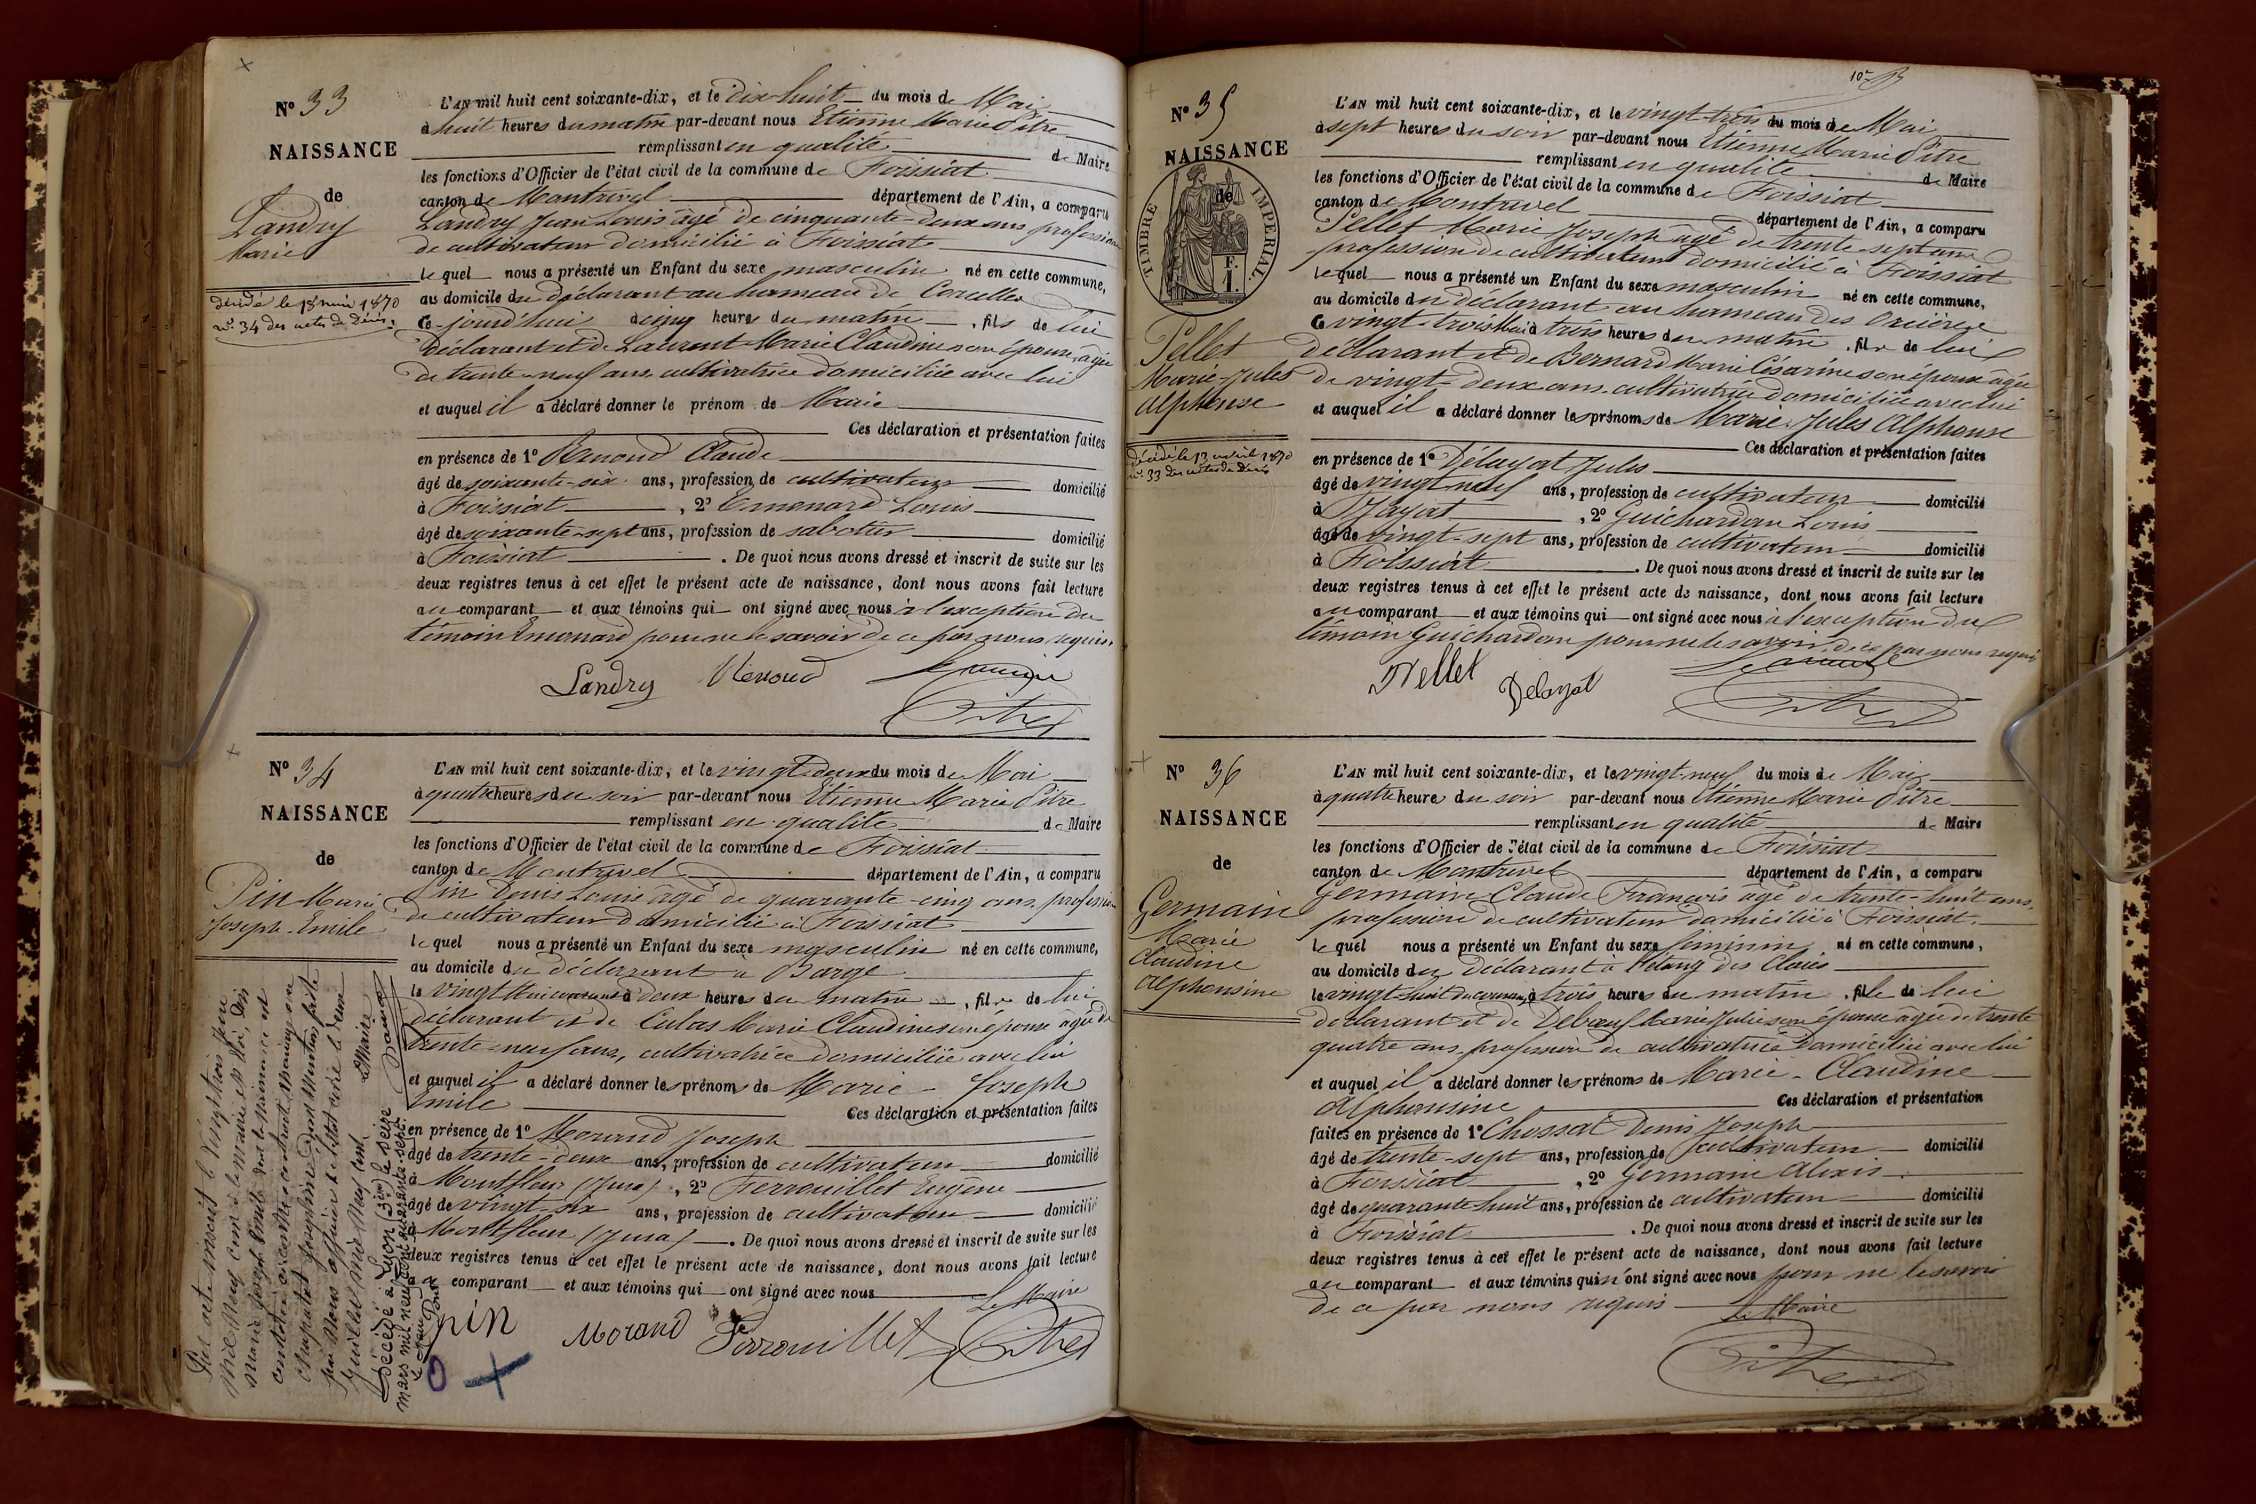 N° 33
NAISSANCE
de
Landry
Marie
décédé le 18 mai 1870
n°. 34 des actes de Décès.
L'AN mil huit cent soixante-dix, et le dix-huit du mois de Mai
à huit heures du matin par-devant nous Etienne Marie Pitre
remplissant en qualité de Maire
les fonctions d'Officier de l'état civil de la commune de Foissiat
canton de Montrevel département de l'Ain, a comparu
Landry Jean Louis âgé de cinquante-deux ans profession
de cultivateur domicilié à Foissiat
lequel nous a présenté un Enfant du sexe masculin né en cette commune,
au domicile du déclarant au hameau de Corcelles
Ce jourd'hui à cinq heures du matin, fils de lui
Déclarant et de Laurent Marie Claudine son épouse, âgée
de trente-neuf ans cultivatrice domiciliée avec lui
et auquel il a déclaré donner le prénom de Marie
Ces déclaration et présentation faites
en présence de 1° Renoud Claude
âgé de soixante-six ans, profession de cultivateur domicilié
à Foissiat, 2° Emonard Louis
âgé de soixante-sept ans, profession de sabotier domicilié
à Foissiat. De quoi nous avons dressé et inscrit de suite sur les
deux registres tenus à cet effet le présent acte de naissance, dont nous avons fait lecture
au comparant et aux témoins qui ont signé avec nous à l'exception du
témoin Emonard pour ne le savoir de ce par nous requis.
Landry Renoud Le maire
Pitre
N° 34
NAISSANCE
de
Pin Marie
Joseph-Emile
L'AN mil huit cent soixante-dix, et le vingt-deux du mois de Mai
à quatre heures du soir par-devant nous Etienne Marie Pitre
remplissant en qualité de Maire
les fonctions d'Officier de l'état civil de la commune de Foissiat
canton de Montrevel département de l'Ain, a comparu
Pin Denis Louis âgé de quarante-cinq ans profession
de cultivateur domicilié à Foissiat
lequel nous a présenté un Enfant du sexe masculin né en cette commune,
au domicile du déclarant à Barge
le vingt Mai courant à deux heures du matin, fils de lui
déclarant et de Cubas Marie Claudine son épouse âgée de
trente-neuf ans, cultivatrice domiciliée avec lui
et auquel il a déclaré donner les prénoms de Marie-Joseph
Emile Ces déclaration et présentation faites
en présence de 1° Morand Joseph
âgé de trente-deux ans, profession de cultivateur domicilié
à Montfleur (Jura), 2° Ferrouillet Eugène
âgé de vingt-six ans, profession de cultivateur domicilié
à Montfleur (Jura). De quoi nous avons dressé et inscrit de suite sur les
deux registres tenus à cet effet le présent acte de naissance, dont nous avons fait lecture
comparant et aux témoins qui ont signé avec nous
Le Maire
pin Morand Ferrouillet Pitre
Par acte inscrit le vingt trois
mil neuf cent à la mairie
Marie Joseph Emile dont la naissance est
par nous officier de l'état civil le deux
Juillet mil neuf cent
Le Maire
Décédé à Lyon (3em) le seize
mars mil neuf cent quarante-sept
10e
N° 35
NAISSANCE
de
TIMBRE IMPERIAL
F.
1.
Pellet
Marie-Jules
Alphonse
décédé le 13 1870
n°. 33 des actes de Décès
L'AN mil huit cent soixante-dix, et le vingt-trois du mois de Mai
à sept heures du soir par-devant nous Etienne Marie Pitre
remplissant en qualité de Maire
les fonctions d'Officier de l'état civil de la commune de Foissiat
canton de Montrevel département de l'Ain, a comparu
Pellet Marie Joseph âgé de trente-sept ans
profession de cultivateur domicilié à Foissiat
lequel nous a présenté un Enfant du sexe masculin né en cette commune,
au domicile du déclarant au hameau des
Ce vingt-trois Mai à trois heures du matin, fils de lui
déclarant et de Bernard Marie Césarine son épouse âgée
de vingt-deux ans cultivatrice domiciliée avec lui
et auquel il a déclaré donner les prénoms de Marie Jules Alphonse
Ces déclaration et présentation faites
en présence de 1° Délayat Jules
âgé de vingt neuf ans, profession de cultivateur domicilié
à Jayat, 2° Guichardan Louis
âgé de vingt-sept ans, profession de cultivateur domicilié
à Foissiat. De quoi nous avons dressé et inscrit de suite sur les
deux registres tenus à cet effet le présent acte de naissance, dont nous avons fait lecture
au comparant et aux témoins qui ont signé avec nous à l'exception du
témoin Guichardan pour ne le savoir, de ce par nous requis
Pellet Delayat Le maire
Pitre
N° 36
NAISSANCE
de
Germain
Marie
Claudine
Alphonsine
L'AN mil huit cent soixante-dix, et le vingt-neuf du mois de Mai
à quatre heures du soir par-devant nous Etienne Marie Pitre
remplissant en qualité de Maire
les fonctions d'Officier de l'état civil de la commune de Foissiat
canton de Montrevel département de l'Ain, a comparu
Germain Claude François âgé de trente-huit ans
profession de cultivateur domicilié à Foissiat
lequel nous a présenté un Enfant du sexe féminin né en cette commune,
au domicile du déclarant à l'étang des Claies
le vingt-huit du courant à trois heures du matin, fille de lui
déclarant et de Debœuf Marie Julie son épouse âgée de trente
quatre ans profession de cultivatrice domiciliée avec lui
et auquel il a déclaré donner les prénoms de Marie-Claudine
Alphonsine Ces déclaration et présentation
faites en présence de 1° Chossat Denis Joseph
âgé de trente-sept ans, profession de cultivateur domicilié
à Foissiat, 2° Germain Alexis
âgé de quarante huit ans, profession de cultivateur domicilié
à Foissiat. De quoi nous avons dressé et inscrit de suite sur les
deux registres tenus à cet effet le présent acte de naissance, dont nous avons fait lecture
au comparant et aux témoins qui n'ont signé avec nous pour ne le savoir
de ce par nous requis
Le Maire
Pitre